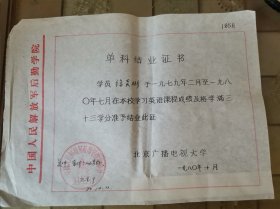 中国人民解放军后勤学院
1858
单科结业证书
学员 于一九七九年二月至一九八
〇年七月在本校学习英语课程成绩及格学满三
十三学分准予结业此证
北京广播电视大学
一九八〇年 月